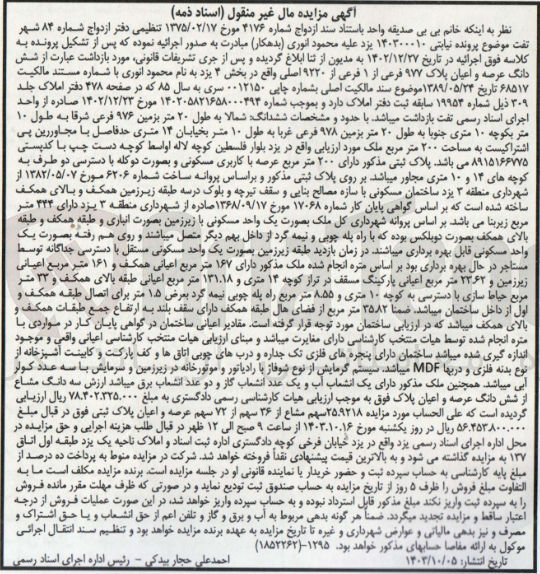 آگهی مزایده مال غیر منقول (اسناد ذمه)
نظر به اینکه خانم بی بی صدیقه واحد باستناد سند ازدواج شماره ۴۱۷۶ مورخ ۱۳۷۵/۰۲/۱۷ تنظیمی دفتر ازدواج شماره ۸۴ شهر
تفت موضوع پرونده نیابتی ۱۴۰۳۰۰۰۱۰ یزد علیه محمود انوری (بدهکار) مبادرت به صدور اجرائیه نموده که پس از تشکیل پرونده به
کلاسه فوق اجرائیه در تاریخ ۱۴۰۲/۱۲/۲۷ به مدیون از ثنا ابلاغ گردیده و پس از جری تشریفات قانونی، مورد بازداشت عبارت از شش
دانگ عرصه و اعیان پلاک ۹۷۷ فرعی از ۱ فرعی از ۹۲۲۰ اصلی واقع در بخش ۴ یزد به نام محمود انوری با شماره مستند مالکیت
۶۸۵۱۷ تاریخ ۱۳۸۹/۰۵/۲۴ موضوع سند مالکیت اصلی بشماره چاپی ۰۰۱۲۱۵۰ سری نه سال ۸۵ که در صفحه ۴۷۸ دفتر املاک جلد
۳۰۹ ذیل شماره ۱۹۹۵۴ سابقه ثبت دفتر املاک دارد و بموجب شماره ۱۴۰۲۰۵۸۲۱۶۵۸۰۰۰۴۹۴ مورخ ۱۴۰۲/۱۲/۲۳ صادره از واحد
اجرای اسناد رسمی تفت بازداشت میباشد. با حدود و مشخصات ششدانگ: شمالا به طول ۲۰ متر بزمین ۹۷۶ فرعی شرقا به طول ۱۰
متر بکوچه ۱۰ متری جنوبا به طول ۲۰ متر بزمین ۹۷۸ فرعی غربا به طول ۱۰ متر بخیابان ۱۴ متری حدفاصل با مجاوررین پی
اشتراکیست به مساحت ۲۰۰ متر مربع ملک مورد ارزیابی واقع در یزد بلوار فلسطین کوچه لاله اواسط کوچه دست چپ با کدپستی
۸۹۱۵۱۶۶۷۷۵ می باشد. پلاک ثبتی مذکور دارای ۲۰۰ متر مربع عرصه با کاربری مسکونی و بصورت دوکله با دسترسی دو طرف به
کوچه های ۱۴ و ۱۰ متری مجاور میباشد. بر روی پلاک ثبتی مذکور و براساس پروانه ساخت شماره ۶۲۰۶ مورخ ۱۳۸۲/۰۵/۰۷ از
شهرداری منطقه ۳ یزد ساختمان مسکونی با سازه مصالح بنایی و سقف تیرچه و بلوک درسه طبقه زیرزمین همکف و بالای همکف
ساخته شده است که بر اساس گواهی پایان کار شماره ۱۷۰۶۸ مورخ ۱۳۶۸/۰۹/۱۷ صادره از شهرداری منطقه ۳ یزد دارای ۴۴۴ متر
مربع زیربنا می باشد. بر اساس پروانه شهرداری کل ملک بصورت یک واحد مسکونی با زیرزمین بصورت انباری و طبقه همکف و طبقه
بالای همکف بصورت دوبلکس بوده که با راه پله چوبی و نیمه گرد از داخل بهم دیگر متصل میباشند و روی هم رفته بصورت یک
واحد مسکونی قابل بهره برداری میباشند. در زمان بازدید طبقه زیرزمین بصورت یک واحد مسکونی مستقل با دسترسی جداگانه توسط
مستاجر در حال بهره برداری بود بر اساس متره انجام شده ملک مذکور دارای ۱۶۷ متر مربع اعیانی همکف و ۱۶۱ متر مربع اعیانی
زیرزمین و ۲۳.۶۲ متر مربع اعیانی پارکینگ مسقف در تراز کوچه ۱۴ متری و ۱۳۱.۱۸ متر مربع اعیانی طبقه بالای همکف و ۳۳ متر
مربع حیاط سازی با دسترسی به کوچه ۱۰ متری و ۸.۵۵ متر مربع راه پله چوبی نیمه گرد بعرض ۱.۵ متر برای اتصال طبقه همکف و
اول از داخل ساختمان میباشد. ضمنا ۳۵.۸۲ متر مربع از فضای هال طبقه همکف دارای سقف بلند به ارتفاع جمع طبقات همکف و
بالای همکف میباشد که در ارزیابی ساختمان مورد توجه قرار گرفته است. مقادیر اعیانی ساختمان در گواهی پایان کار در مواردی با
متره انجام شده توسط هیات منتخب کارشناسی دارای مغایرت میباشد و مبنای ارزیابی هیات منتخب کارشناسی اعیانی واقعی و موجود
اندازه گیری شده میباشد ساختمان دارای پنجره های فلزی تک جداره و درب های چوبی اتاق ها و کف پارکت و کابینت آشپزخانه از
نوع بدنه فلزی و دربها MDF میباشد. سیستم گرمایش از نوع شوفاژ با رادیاتور و موتورخانه در زیرزمین و سرمایش با سه عدد کولر
آبی میباشد. همچنین ملک مذکور دارای یک انشعاب آب و یک عدد انشعاب گاز و دو عدد انشعاب برق میباشد ارزش سه دانگ مشاع
از شش دانگ عرصه و اعیان پلاک فوق به موجب ارزیابی هیات کارشناسی رسمی دادگستری به مبلغ ۷۸.۴۰۲.۳۲۵.۰۰۰ ریال ارزیابی
گردیده است که علی الحساب مورد مزایده ۲۵.۹۲۱۸سهم مشاع از ۳۶ سهم از ۷۲ سهم عرصه و اعیان پلاک ثبتی فوق در قبال مبلغ
۵۶.۴۵۳.۸۰۰.۰۰۰ ریال در روز یکشنبه مورخ ۱۴۰۳.۱۰.۱۶ از ساعت ۹ صبح الی ۱۲ ظهر در قبال طلب هزینه اجرایی و حق مزایده در
محل اداره اجرای اسناد رسمی یزد واقع در یزد خیابان فرخی کوچه دادگستری اداره ثبت اسناد و املاک ناحیه یک یزد طبقه اول اتاق
۱۳۷ به مزایده گذاشته می شود و به بالاترین قیمت پیشنهادی نقداً فروخته خواهد شد. شرکت در مزایده منوط به پرداخت ده درصد از
مبلغ پایه کارشناسی به حساب سپرده ثبت و حضور خریدار یا نماینده قانونی او در جلسه مزایده است. برنده مزایده مکلف است ما به
التفاوت مبلغ فروش را ظرف ۵ روز از تاریخ مزایده به حساب صندوق ثبت تودیع نماید و در صورتی که ظرف مهلت مقرر مانده فروش
را به سپرده ثبت واریز نکند مبلغ مذکور قابل استرداد نبوده و به حساب سپرده واریز خواهد شد، در این صورت عملیات فروش از درجه
اعتبار ساقط و مزایده تجدید میگردد. ضمناً هر گونه بدهی مربوط به آب و برق و گاز و تلفن اعم از حق انشعاب و یا حق اشتراک و
مصرف و نیز بدهی مالیاتی و عوارض شهرداری و غیره تا تاریخ مزایده به عهده برنده مزایده خواهد بود و تنظیم سند انتقال اجرائی
موکول به ارائه مفاصا حسابهای مذکور خواهد بود. ۱۲۹۵-(۱۸۵۲۲۶۲)
تاریخ انتشار: ۱۴۰۳/۱۰/۰۵
احمدعلی حجار بیدکی - رئیس اداره اجرای اسناد رسمی